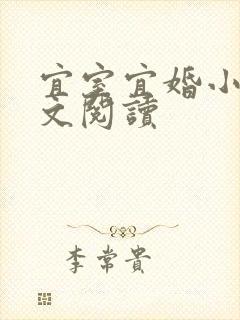 宜室宜婚小
文閱讀
李常貴